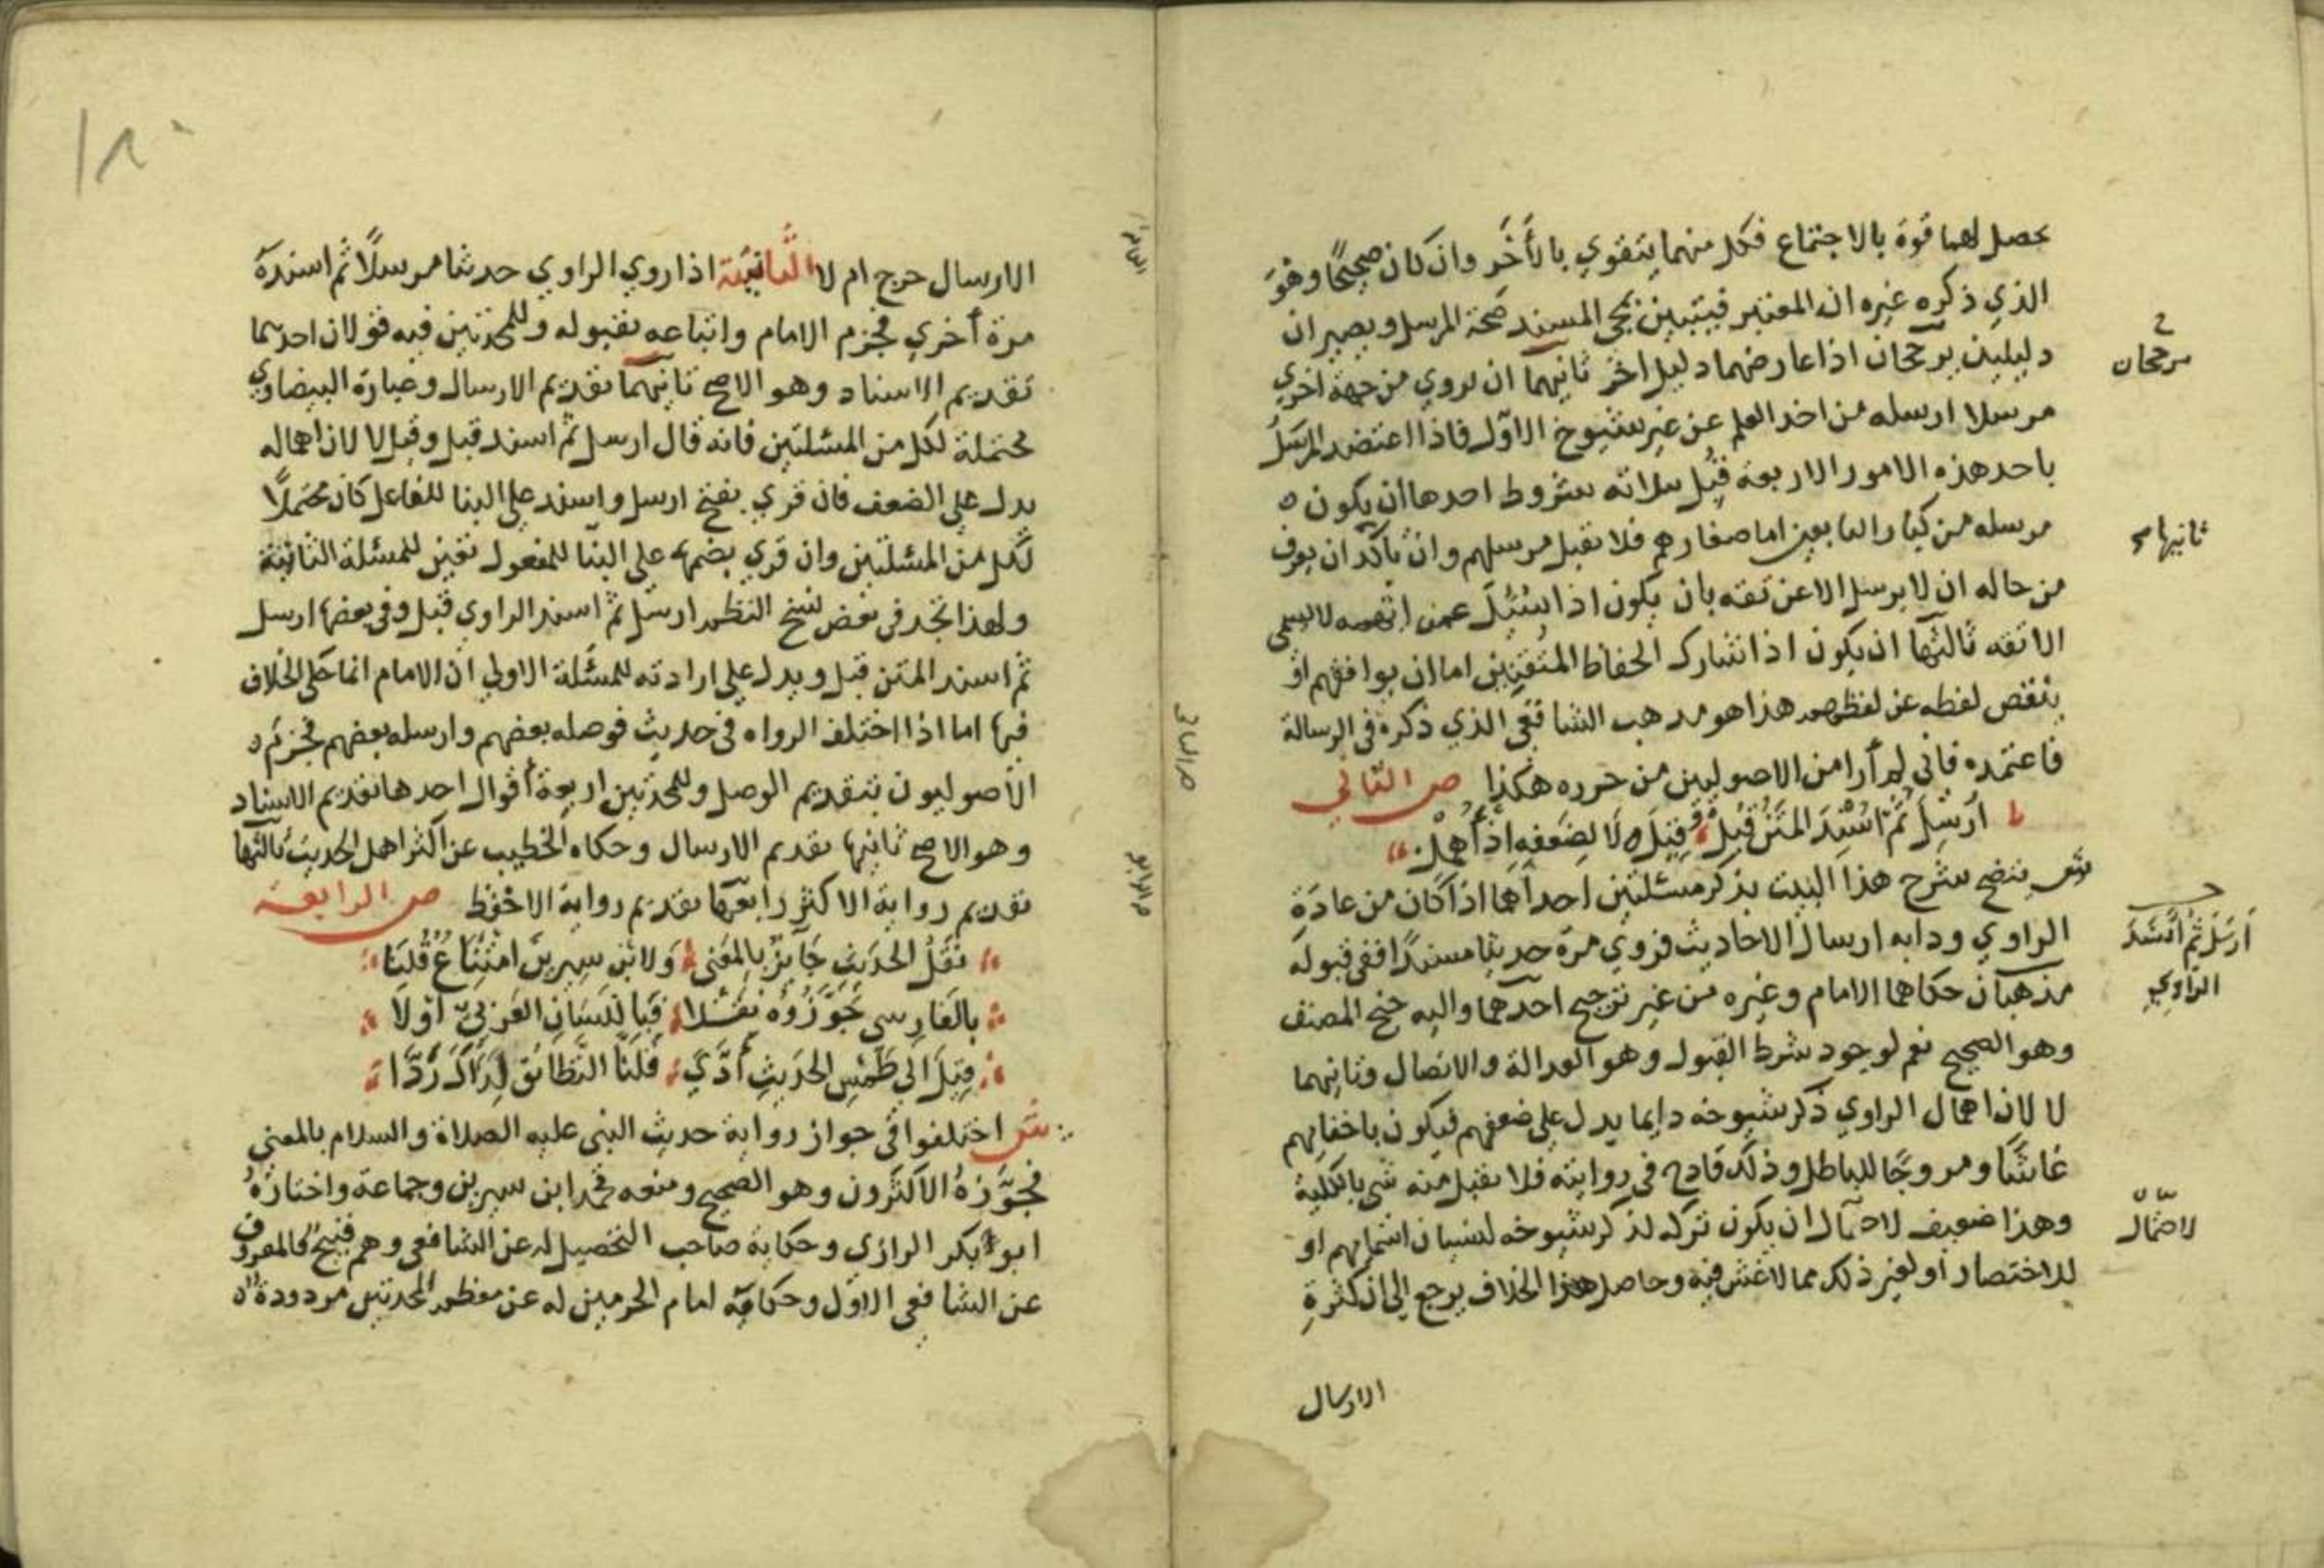 يحصل لهما قوة بالاجتماع فكل منهما يتقوي بالأخر وان كان صحيحًا وهوَ
الذي ذكره غيره ان المعتبر فيتبين بمجى المسند صحة المرسل ويصيران
دليلين يرجحان اذا عارضهما دليل اخر ثانيهما ان يروي من جهة اخري
مرسلا ارسله من اخد العلم عن غير شيوخ الاول فاذا اعتضد المرسل
باحد هذه الامور الاربعة قبُل بثلاثه شروط احدها ان يكون
مرسله من كبار التابعين اما صغارهم فلا يقبل مرسلهم وان تأكد ان يعرف
من حاله ان لا يرسل الا عن ثقه بان يكون اذا سُئل عمن لا يسمى
الا ثقه ثالثها ان يكون اذا شارك الحفاظ المتقنين اما ان يوافقهم او
ينقص لفظه عن لفظهم هذا هو مذهب الشافعي الذي ذكره في الرسالة
فاعتمده فاني لم أرا من الاصوليين من حرره هكذا ص الثاني
ارسل ثم اسند المتن قبل وقيل لا لضعفه اذ أهمل
ش يتضح شرح هذا البيت بذكر مسئلتين احداهما اذا كان من عادة
الراوي ودابه ارسال الاحاديث فروي مرة حديثا مسندًا ففي قبوله
مذهبان حكاهما الامام وغيره من غير ترجيح احدهما واليه جنح المصنف
وهو الصحيح نعم لوجود شرط القبول وهو العدالة والاتصال وثانيهما
لا لان اهمال الراوي ذكر شيوخه دايما يدل علي ضعفهم فيكون باخفايهم
غاشًّا ومروجًا للباطل وذلك قادح في روايته فلا يقبل منه شي بالكلية
وهذا ضعيف لاحتمال ان يكون تركه لذكر شيوخه لنسيان اسمايهم او
للاختصار او لغير ذلك مما لا غش فيه وحاصل هذا الخلاف يرجع الي ان كثرة
الارسال
مرجحان
ثانيها
أرسل ثم أسند
الراوي
لاحتمال
الارسال جرح ام لا الثانية اذا روي الراوي حدثنا مرسلًا ثم اسنده
مرة أخري فجزم الامام واتباعه بقبوله وللمحدثين فيه قولان احدهما
تقديم الاسناد وهو الاصح ثانيهما تقديم الارسال وعبارة البيضاوي
محتملة لكل من المسئلتين فانه قال ارسل ثم اسند قبل وقيل لا لان اهماله
يدل علي الضعف فان قري بفتح ارسل واسند علي البنا للفاعل كان محتملًا
لكل من المسئلتين وان قري بضمها علي البنا للمفعول تعين للمسئلة الثانية
ولهذا تجد في بعض نسخ النظم ارسل ثم اسند الراوي قبل وفي بعضها ارسل
ثم اسند المتن قبل ويدل علي ارادته للمسئلة الاولي ان الامام انما حكى الخلاف
فيها اما اذا اختلف الرواه في حديث فوصله بعضهم وارسله بعضهم فجزم
الاصوليون بتقديم الوصل وللمحدثين اربعة أقوال احدها تقديم الاسناد
وهو الاصح ثانيها تقديم الارسال وحكاه الخطيب عن اكثر اهل الحديث ثالثها
تقديم رواية الاكثر رابعها تقديم رواية الاحفظ ص الرابعة
نقل الحديث جايز بالمعنى ولابن سيرين امتناع قلنا
بالفارسي جوزوه نقلا فباللسان العربي أولا
قيل الي طمس الحديث أدّي قلنا التطابق لذاك ردّا
ش اختلفوا في جواز رواية حديث النبي عليه الصلاة والسلام بالمعني
فجوّزه الاكثرون وهو الصحيح ومنعه محمد ابن سيرين وجماعة واختاره
ابو بكر الرازي وحكاية صاحب التحصيل له عن الشافعي وهم قبيح فالمعروف
عن الشافعي الاول وحكاية امام الحرمين له عن معظم المحدثين مردودة